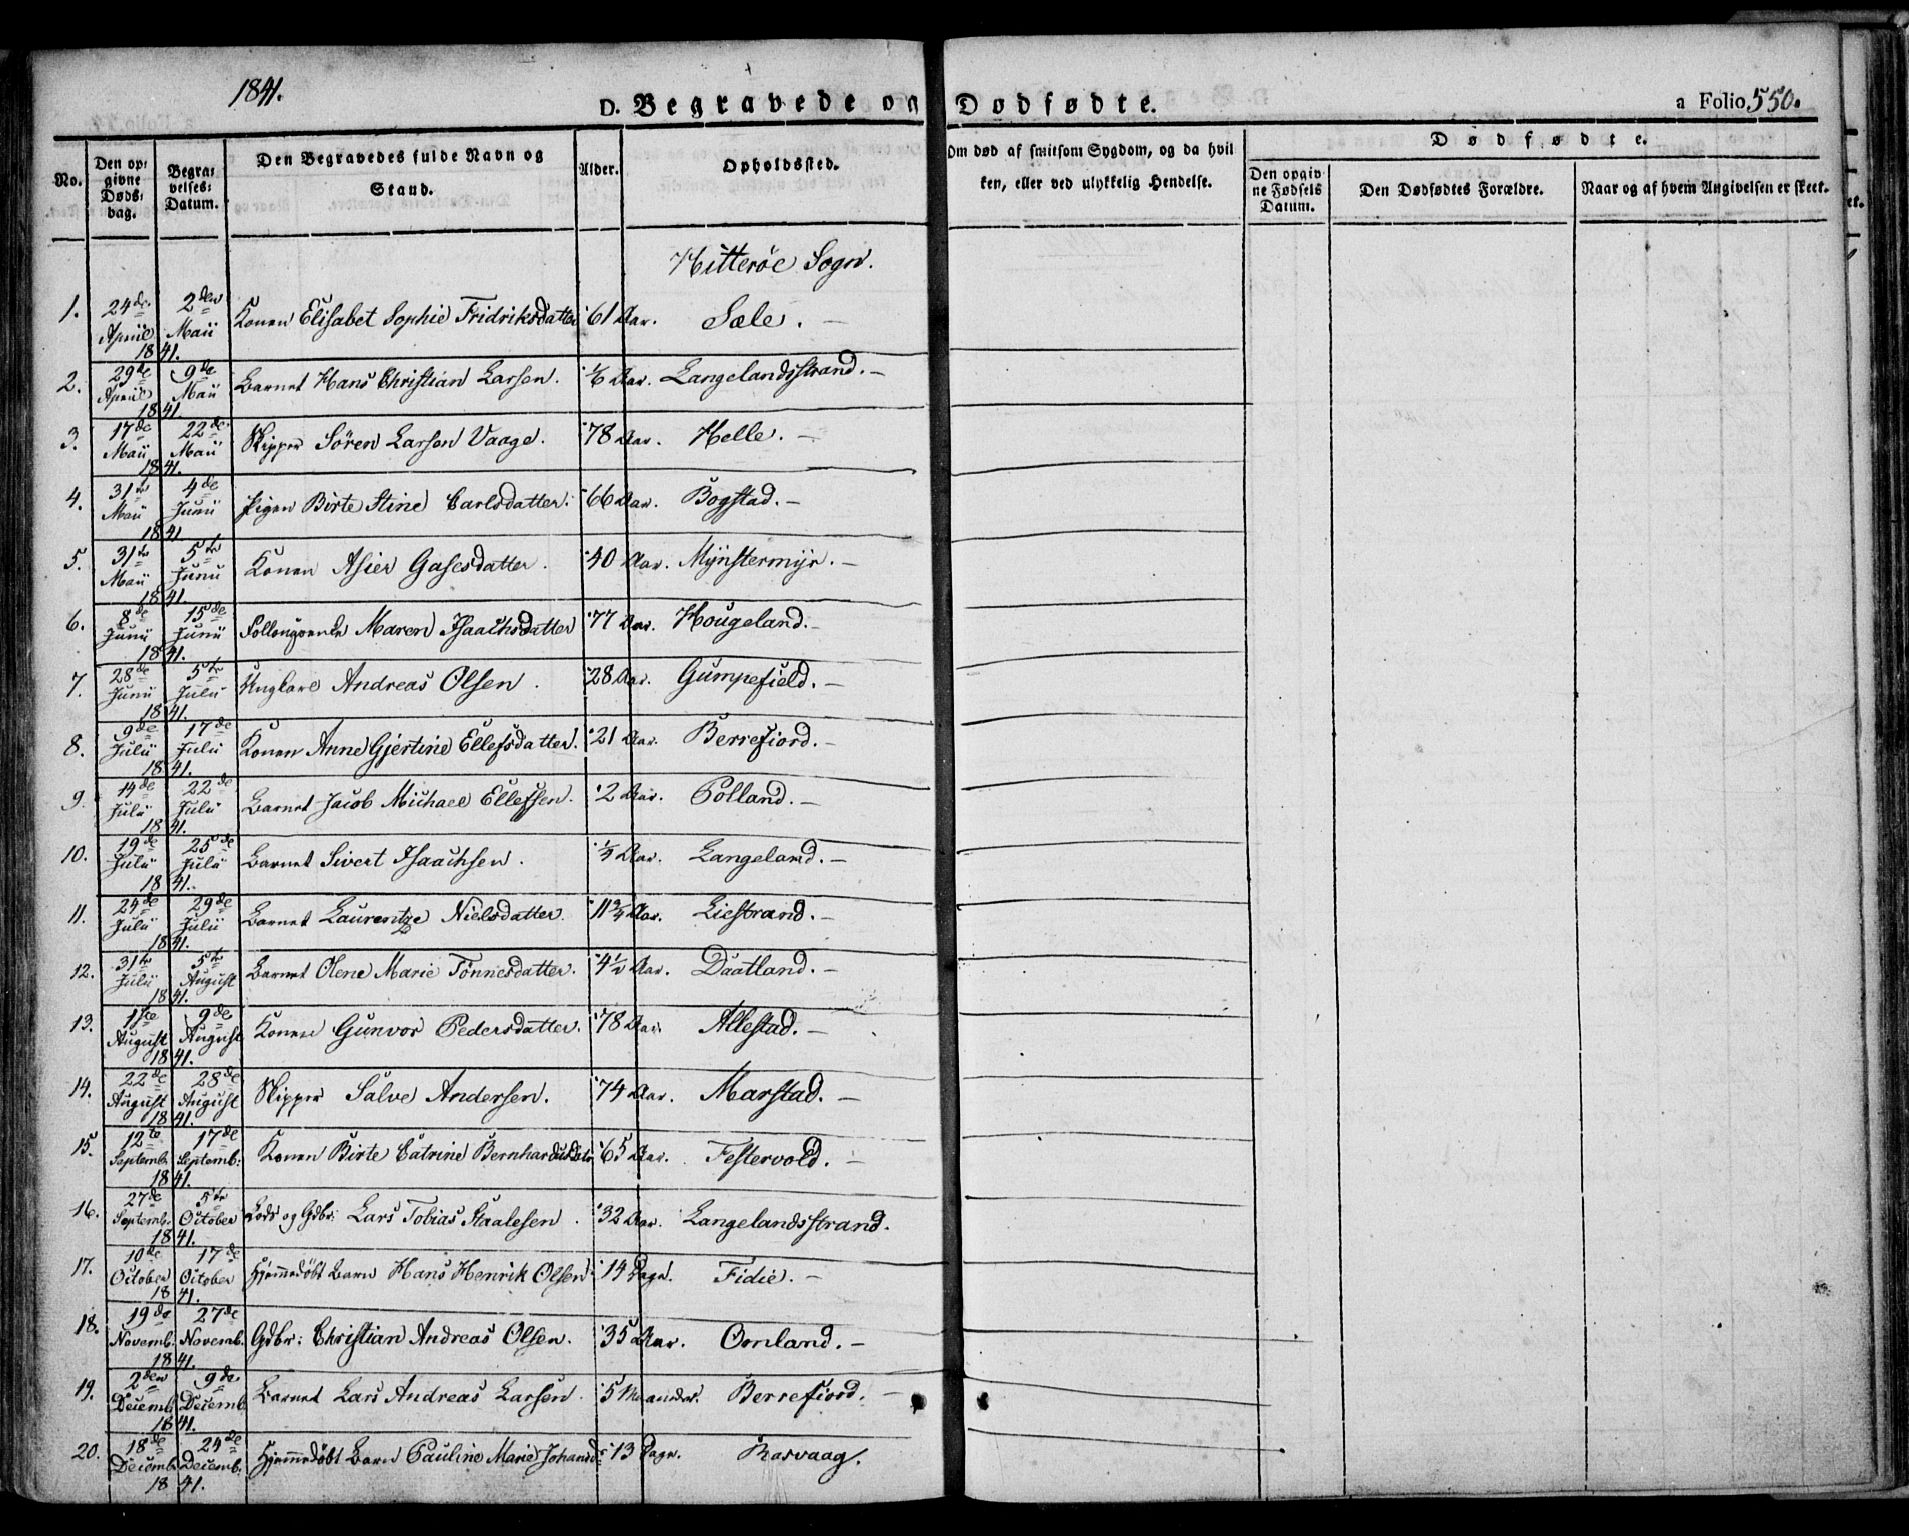 1841.
D. Begravede og Dødfødte.
a Folio 550.
No.
Den opgivne Døds-dag.
Begra-velses-Datum.
Den Begravedes fulde Navn og Stand.
Alder.
Opholdssted.
Om død af smitsom Sygdom, og da hvilken, eller ved ulykkelig Hendelse.
Dødfødte.
Den opgivne Fødsels Datum.
Den Dødfødtes Forældre.
Naar og af hvem Angivelsen er skeet.
Hitterøe Sogn.
1. 24de April 2den Maii 1841. Konen Elisabet Sophie Fridriksdatter 61 Aar. Sæle. –
2. 29de April 9de Maii 1841. Barnet Hans Christian Larsen. 1/6 Aar. Langelandsstrand. –
3. 17de Maii 22de Maii 1841. Skipper Sören Larsen Vaage. 78 Aar. Helle. –
4. 31te Maii 4de Junii 1841. Pigen Birte Stine Carlsdatter. 66 Aar. Bogstad. –
5. 31te Maii 5te Junii 1841. Konen Asier Gasesdatter. 40 Aar. Mÿnstermÿr. –
6. 8de Junii 15de Junii 1841. Maren Isaachsdatter 77 Aar. Hougeland. –
7. 28de Junii 5te Julii 1841. Ungkarl Andreas Olsen. 28 Aar. Gumpefield. –
8. 9de Julii 17de Julii 1841. Konen Anne Gjertine Ellefsdatter. 21 Aar. Berrefiord. –
9. 14de Julii 22de Julii 1841. Barnet Jacob Michael Ellefsen. 2 Aar. Polland. –
10. 19de Julii 25de Julii 1841. Barnet Sivert Isaachsen. Aar. Langeland. –
11. 24de Julii 29de Julii 1841. Barnet Laurentze Nielsdatter. 11 3/4 Aar. Liestrand. –
12. 31te Julii 5te August 1841. Barnet Olene Marie Tönnesdatter. 4 1/2 Aar. Daatland. –
13. 1ste August 9de August 1841. Konen Gunvor Pedersdatter. 78 Aar. Allestad. –
14. 22de August 28de August 1841. Skipper Salve Andersen. 74 Aar. Marstad. –
15. 12te Septemb. 17de Septemb: 1841. Konen Birte Catrine Bernhardusdatr 65 Aar. Festervold. –
16. 27de Septemb. 5te October 1841. Lods og Gdbr: Lars Tobias Staalesen. 32 Aar. Langelandsstrand.
17. 10de October 17de October 1841. Hjemmedöbt Barn Hans Henrik Olsen. 14 Dage. Fidie. –
18. 19de Novemb. 27de Novemb. 1841. Gdbr: Christian Andreas Olsen. 35 Aar. Omland. –
19. 2den Decemb. 9de Decemb. 1841. Barnet Lars Andreas Larsen. 5 Maaneder. Berrefiord. –
20. 18de Decemb. 24de Decemb. 1841. Hjemmedöbt Barn Pauline Marie Johansd: 13 Dage. Rasvaag.